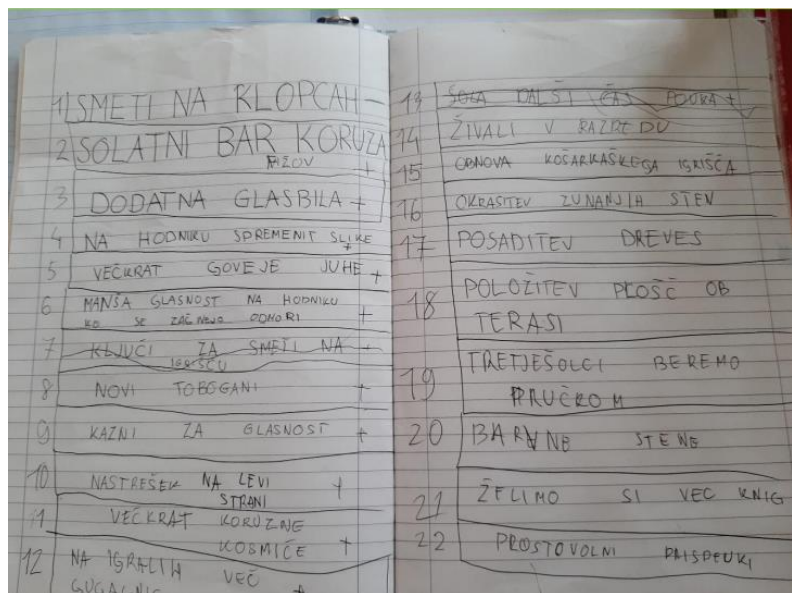 1 SMETI NA KLOPCAH —
2 SOLATNI BAR KORUZA
PIZOV +
3 DODATNA GLASBILA +
4 NA HODNIKU SPREMENIT SLIKE
+
5 VEČKRAT GOVEJE JUHE +
6 MANŠA GLASNOST NA HODNIKU
KO SE ZAČNEJO ODMORI +
7 KLJUČI ZA SMETI NA +
IGRIŠČU
8 NOVI TOBOGANI +
9 KAZNI ZA GLASNOST +
10 NASTREŠEK NA LEVI +
STRANI
11 VEČKRAT KORUZNE
KOSMIČE +
12 NA IGRALIH VEČ
GUGALNIC +
13 ŠOLA DALŠI ČAS POUKA +
14 ŽIVALI V RAZREDU
15 OBNOVA KOŠARKAŠKEGA IGRIŠČA
16 OKRASITEV ZUNANJIH STEN
17 POSADITEV DREVES
18 POLOŽITEV PLOŠČ OB
TERASI
19 TRETJEŠOLCI BEREMO
PRUČKOM
20 BARVNE STENE
21 ŽELIMO SI VEC KNIG
22 PROSTOVOLNI